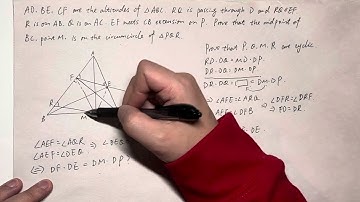 AD. BE. CF are the altitudes of △ABC. RQ is passing through D and RQ∥EF
R is on AB. Q is on AC. EF meets CB extension on P. Prove that the midpoint of
BC, point M. is on the circumcircle of △PQR.
A
F
R
B
M
Prove that P. Q. M. R are cyclic
RD · DQ = MD · DP.
DR · DQ = DM · DP
DR · DQ = = DM · DP.
⇒ ∠AEF = ∠ARQ. ⇒ ∠DFR = ∠DRF
⇒ FD = DR.
∠AEF = ∠AQR ⇒
∠AEF = ∠DEQ
⇔ DF · DE = DM · DP ?